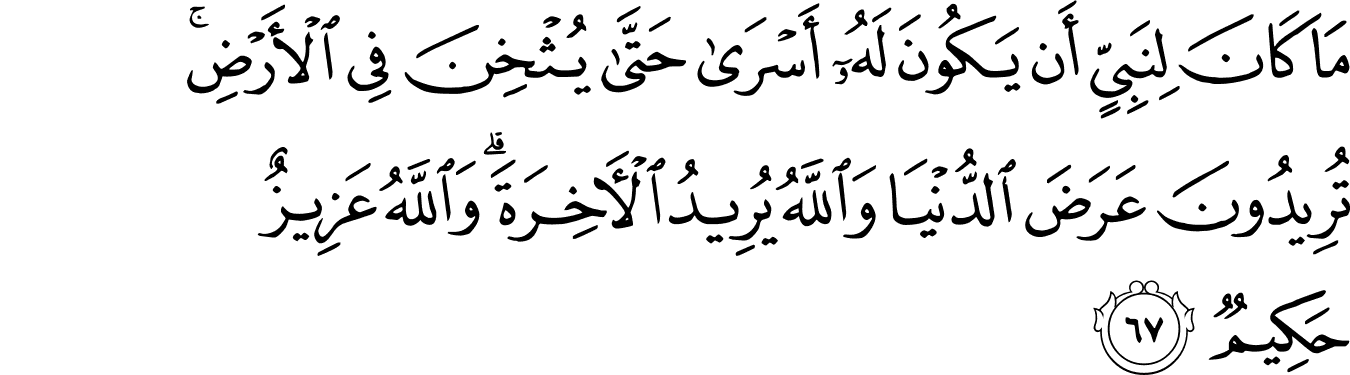 مَا كَانَ لِنَبِيٍّ أَن يَكُونَ لَهُۥٓ أَسْرَىٰ حَتَّىٰ يُثْخِنَ فِي ٱلْأَرْضِ ۚ
تُرِيدُونَ عَرَضَ ٱلدُّنْيَا وَٱللَّهُ يُرِيدُ ٱلْأَخِرَةَ ۗ وَٱللَّهُ عَزِيزٌ
حَكِيمٌ ٦٧